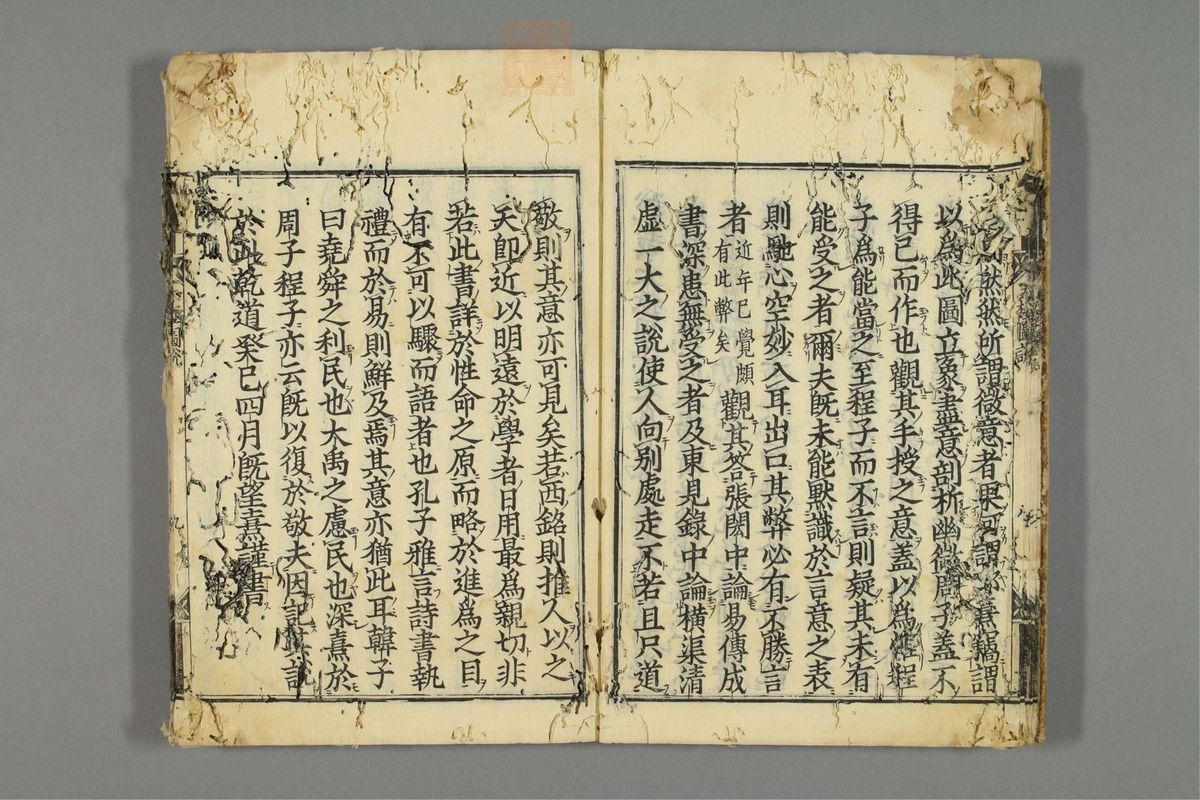 然所謂微意者果何謂
熹竊謂
以爲此圖立象盡意剖析幽微周子蓋不
得已而作也觀其手授之意蓋以爲惟程
子爲能當之至程子而不言則疑其未有
能受之者爾夫旣未能默識於言意之表
則馳心空妙入耳出口其弊必有不勝言
者近年已覺頗有此弊矣觀其答張閎中論易傳成
書深患無受之者及東見錄中論橫渠清
虛一大之說使人向別處走不若且只道
敬則其意亦可見矣若西銘則推人以之
天卽近以明遠於學者日用最爲親切非
若此書詳於性命之原而略於進爲之目
有不可以驟而語者也孔子雅言詩書執
禮而於易則鮮及焉其意亦猶此耳韓子
曰堯舜之利民也大禹之慮民也深熹於
周子程子亦云旣以復於敬夫因記其說
於此乾道癸巳四月旣望熹謹書